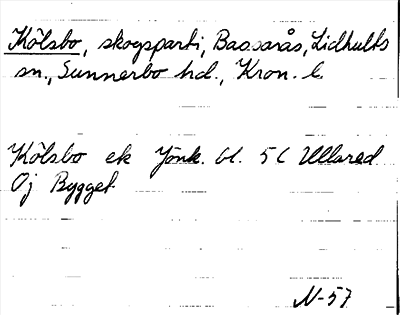 Kölsbo, skogsparti, Bassarås, Lidhults
sn., Sunnerbo hd., Kron. l.
Kölsbo ek Jönk. bl. 5C Ullared
Oj Bygget
N-57